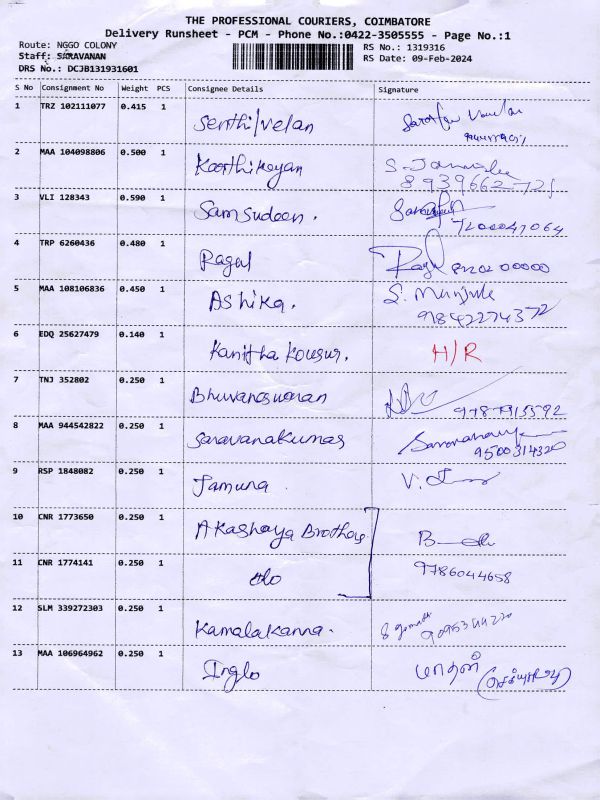 THE PROFESSIONAL COURIERS, COIMBATORE
Delivery Runsheet - PCM - Phone No.:0422-3505555 - Page No.:1
Route: NGGO COLONY
RS No.: 1319316
Staff: SARAVANAN
RS Date: 09-Feb-2024
DRS No.: DCJB131931601
S No Consignment No Weight PCS Consignee Details Signature
1 TRZ 102111077 0.415 1 Senthilvelan
2 MAA 104098806 0.500 1 Karthikeyan
3 VLI 128343 0.590 1 Samsudeen.
7200047064
4 TRP 6260436 0.480 1 Ragal
5 MAA 108106836 0.450 1 Ashika. S. Manjula
97842274372
6 EDQ 25627479 0.140 1 Kanitha Kousur. H/R
7 TNJ 352802 0.250 1 Bhuvaneswaran
9787915592
8 MAA 944542822 0.250 1 Saravanakumar
9500314320
9 RSP 1848082 0.250 1 Jamuna.
10 CNR 1773650 0.250 1 Akashaya Brothers
11 CNR 1774141 0.250 1 do 9786044658
12 SLM 339272303 0.250 1 Kamalakanna.
13 MAA 106964962 0.250 1 Inglo